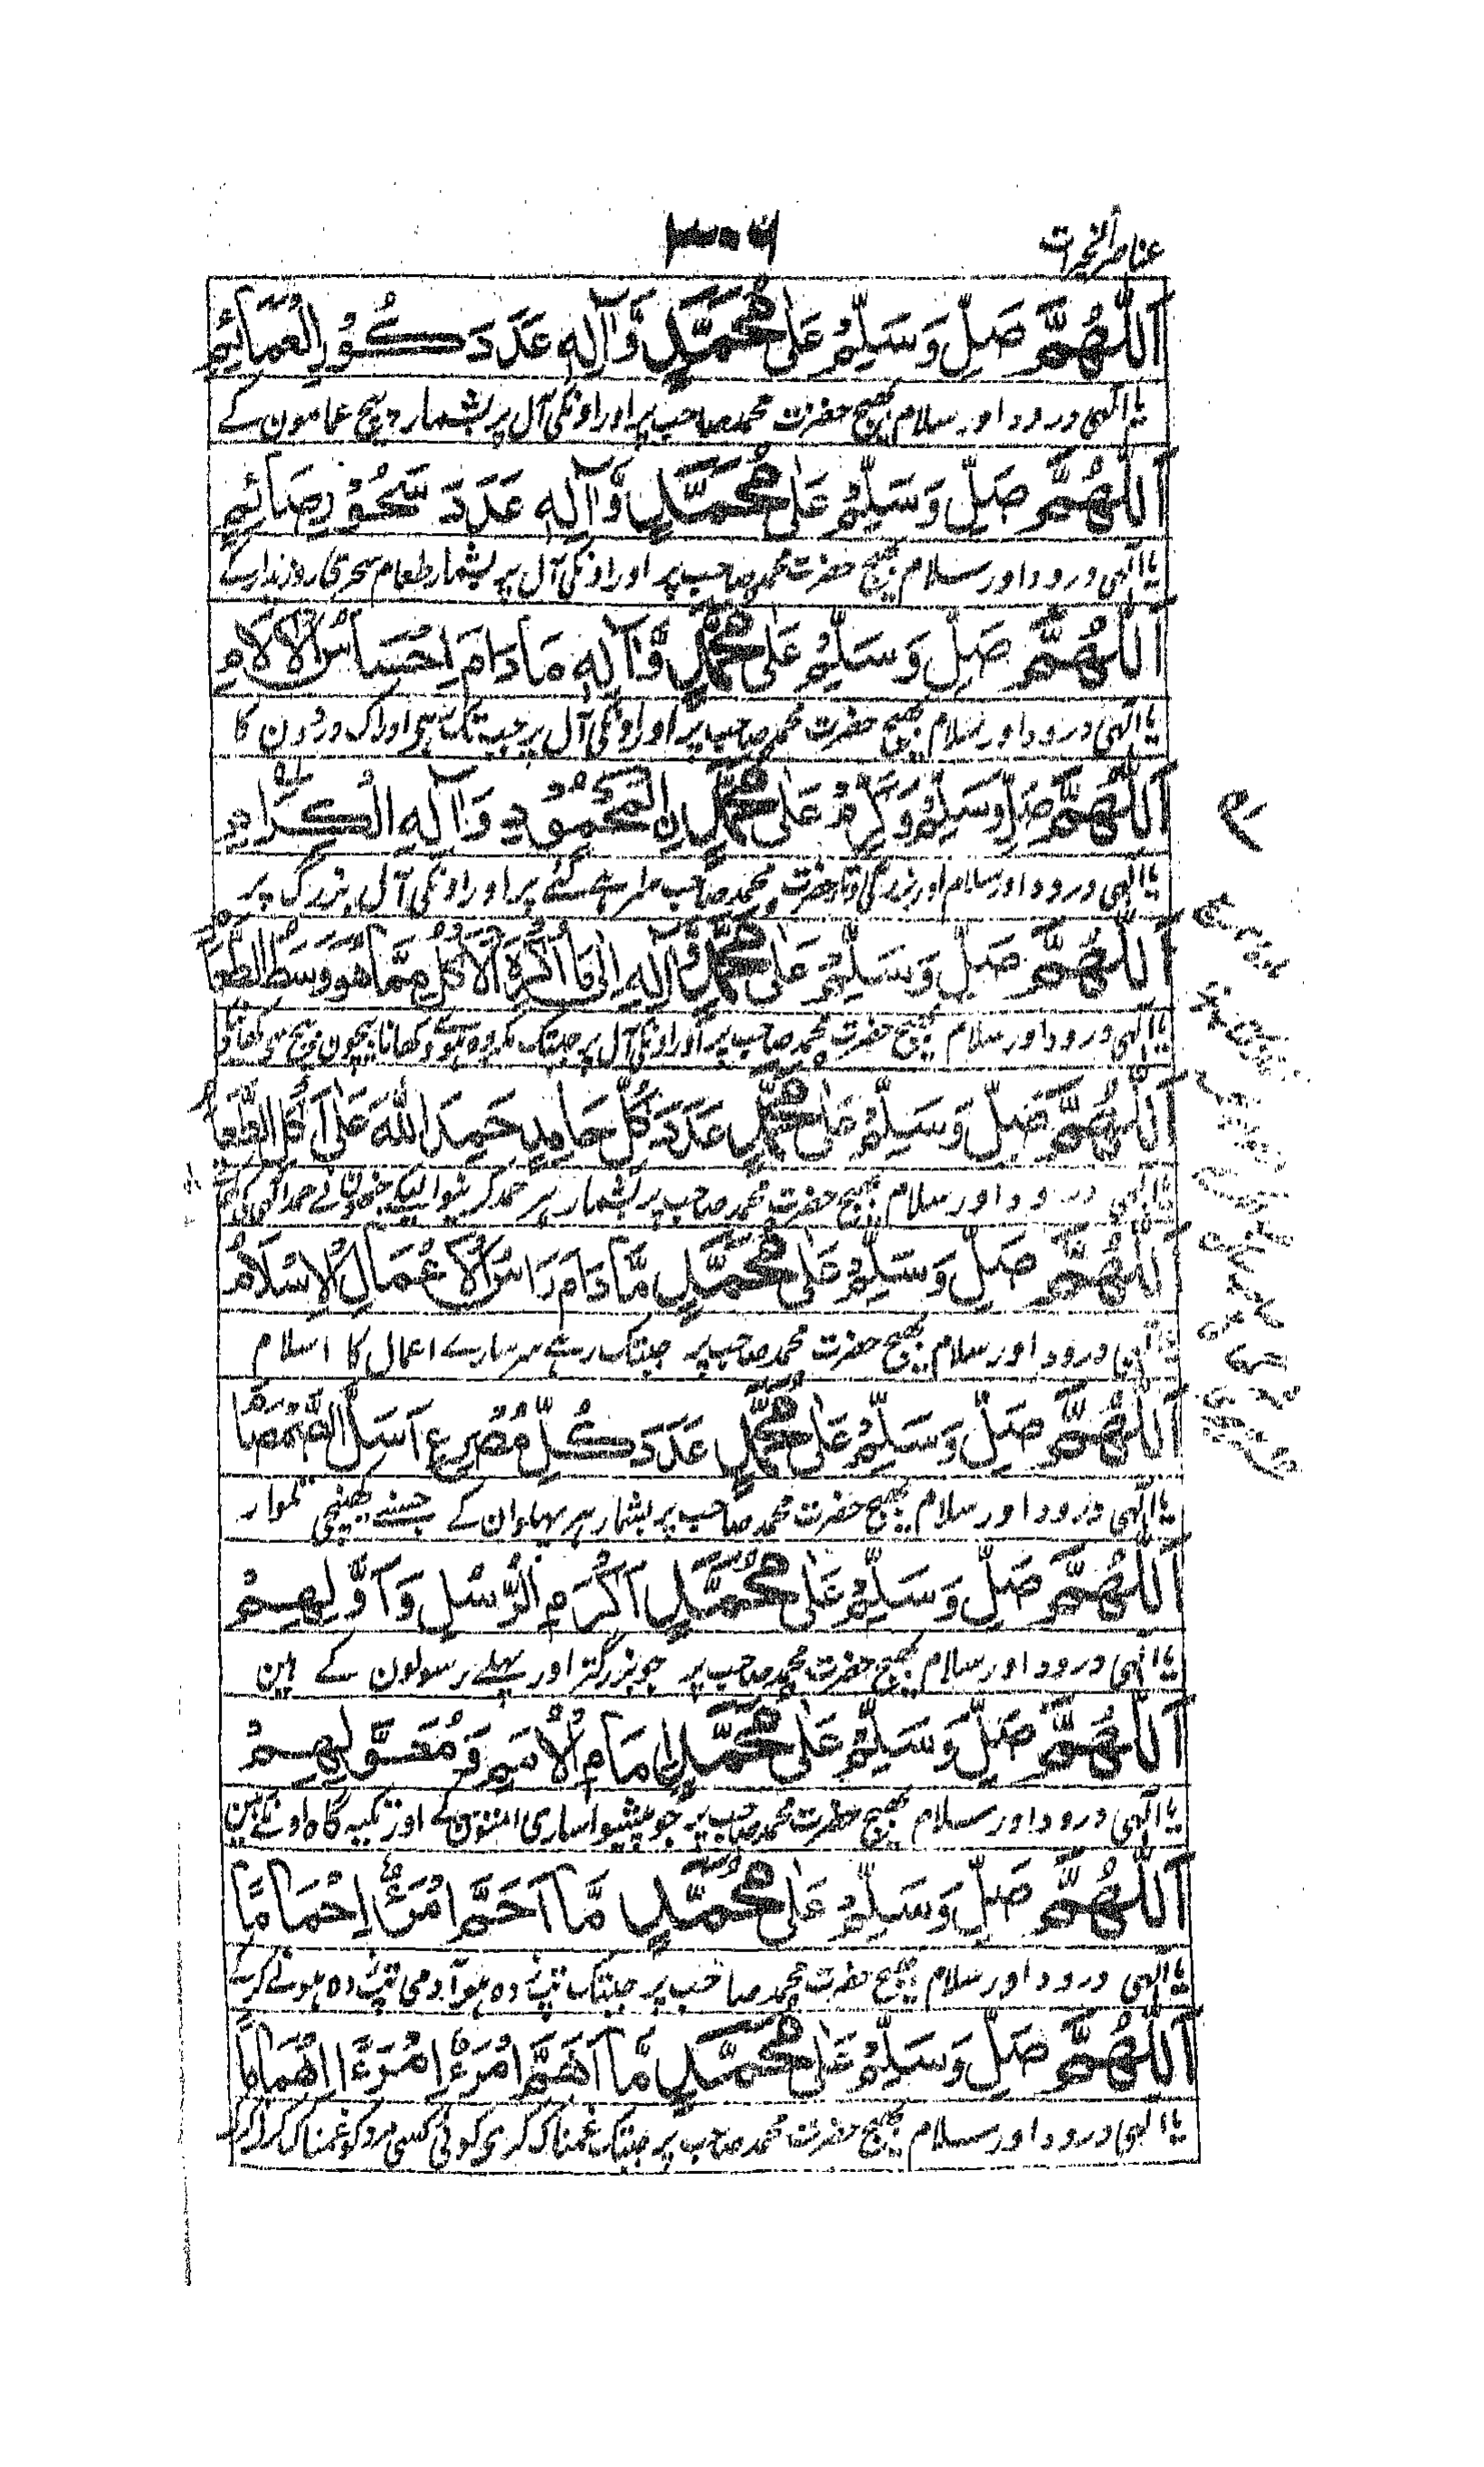 عناصر الخیرات
۳۰۶
اَللّٰهُمَّ صَلِّ وَسَلِّمْ عَلٰى مُحَمَّدٍ وَّآلِهٖ عَدَدَ كُوْرِ الْعَمَائِمِ
یا الٰہی درود اور سلام بھیج حضرت محمد صاحب پر اور اونکی آل پر بشمار پیچ عمامون کے
اَللّٰهُمَّ صَلِّ وَسَلِّمْ عَلٰى مُحَمَّدٍ وَّآلِهٖ عَدَدَ سَحُوْرِ صَائِمٍ
یا الٰہی درود اور سلام بھیج حضرت محمد صاحب پر اور اونکی آل پر بشمار طعام سحری روزہ دار کے
اَللّٰهُمَّ صَلِّ وَسَلِّمْ عَلٰى مُحَمَّدٍ وَّآلِهٖ مَا دَامَ اِحْسَاسُ الْآلَامِ
یا الٰہی درود اور سلام بھیج حضرت محمد صاحب پر اور اونکی آل پر جبتک ہی ادراک دردون کا
اَللّٰهُمَّ صَلِّ وَسَلِّمْ وَكَرِّمْ عَلٰى مُحَمَّدِ نِ الْمَحْمُوْدِ وَآلِهِ الْكِرَامِ
یا الٰہی درود اور سلام اور بزرگی حضرت محمد صاحب سراہے گئے پر اور اونکی آل بزرگ پر
اَللّٰهُمَّ صَلِّ وَسَلِّمْ عَلٰى مُحَمَّدٍ وَّآلِهٖ مَا كُرِهَ الْاَكْلُ مِمَّا هُوَ وَسْطُ الطَّعَامِ
یا الٰہی درود اور سلام بھیج حضرت محمد صاحب پر اور اونکی آل پر جبتک مکروہ ہووے کھانا بیچون بیچ سی کھانیکی
اَللّٰهُمَّ صَلِّ وَسَلِّمْ عَلٰى مُحَمَّدٍ عَدَدَ كُلِّ حَامِدٍ حَمِدَ اللهَ عَلٰى اَكْلِ الطَّعَامِ
یا الٰہی درود اور سلام بھیج حضرت محمد صاحب پر بشمار ہر حمد کرنیوالیکے حمد الٰہی کی
اَللّٰهُمَّ صَلِّ وَسَلِّمْ عَلٰى مُحَمَّدٍ مَّا دَامَ رَاْسُ الْاَعْمَالِ الْاِسْلَامُ
یا الٰہی درود اور سلام بھیج حضرت محمد صاحب پر جبتک رہے سر سارے اعمال کا اسلام
اَللّٰهُمَّ صَلِّ وَسَلِّمْ عَلٰى مُحَمَّدٍ عَدَدَ كُلِّ مُصْرِعٍ اَسَلَّ الصَّمْصَامَ
یا الٰہی درود اور سلام بھیج حضرت محمد صاحب پر بشمار ہر پہلوان کے جسنے کھینچی تلوار
اَللّٰهُمَّ صَلِّ وَسَلِّمْ عَلٰى مُحَمَّدٍ اَكْرَمِ الرُّسُلِ وَاَوَّلِهِمْ
یا الٰہی درود اور سلام بھیج حضرت محمد صاحب پر جو بزرگتر اور پہلے رسولون کے ہین
اَللّٰهُمَّ صَلِّ وَسَلِّمْ عَلٰى مُحَمَّدٍ اِمَامِ الْاُمَمِ وَمُعَوَّلِهِمْ
یا الٰہی درود اور سلام بھیج حضرت محمد صاحب پر جو پیشوا ساری امتون کے اور تکیہ گاہ اونکے ہین
اَللّٰهُمَّ صَلِّ وَسَلِّمْ عَلٰى مُحَمَّدٍ مَّا اَحَمَّ امْرَءٌ اِحْمَامًا
یا الٰہی درود اور سلام بھیج حضرت محمد صاحب پر جبتک تپ زدہ ہو آدمی تپ زدہ ہونے کر کے
اَللّٰهُمَّ صَلِّ وَسَلِّمْ عَلٰى مُحَمَّدٍ مَّا اَهَمَّ امْرَءٌ امْرَءًا اِهْمَامًا
یا الٰہی درود اور سلام بھیج حضرت محمد صاحب پر جبتک غمناک کری کوئی کسی مرد کو غمناک کر کر